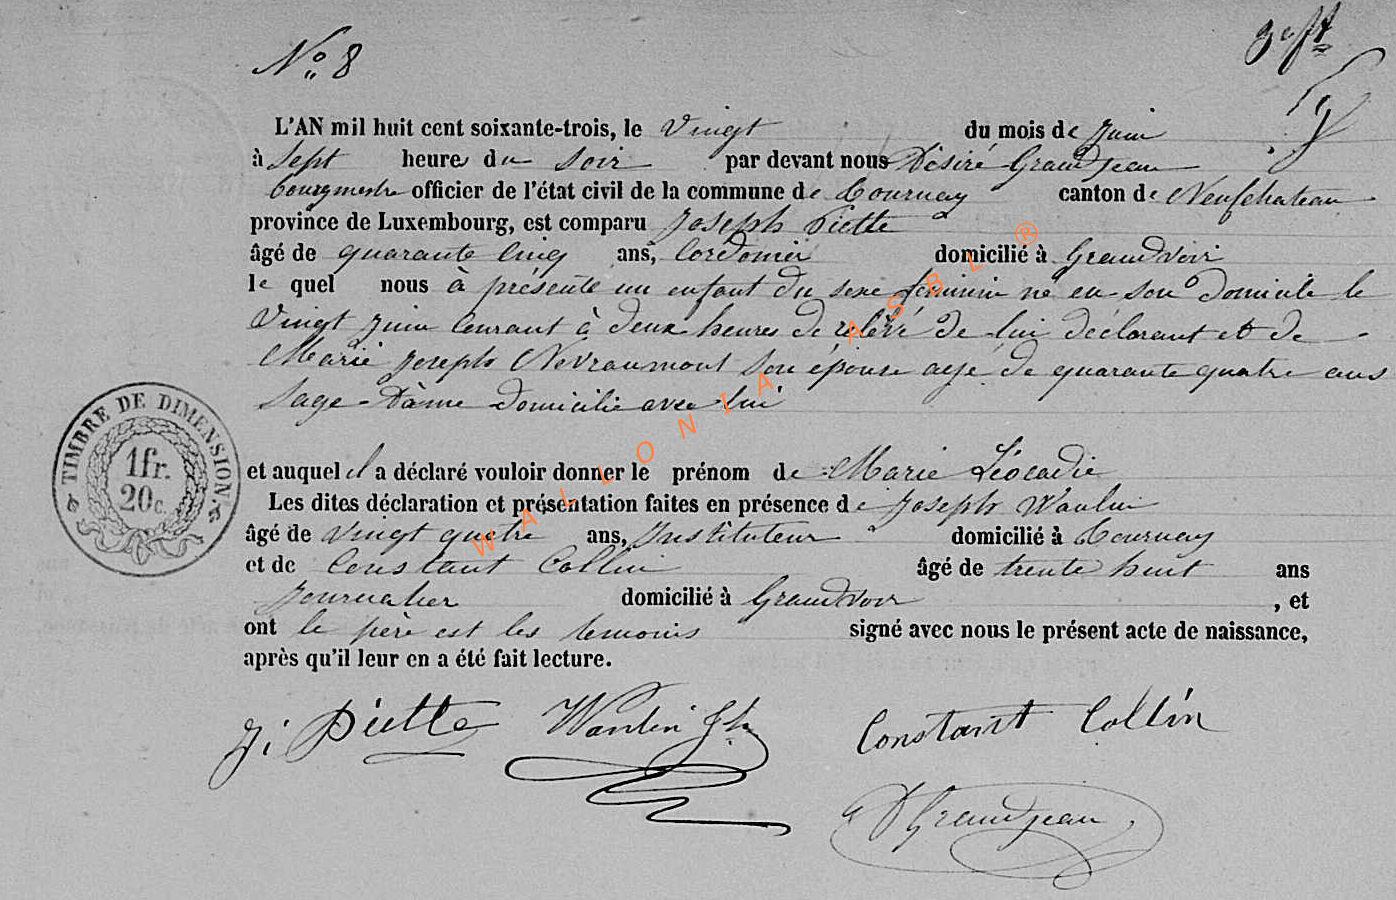 N° 8
L'AN mil huit cent soixante-trois, le Vingt du mois de Juin
à Sept heures du Soir par devant nous Désiré Grandjean
bourgmestre officier de l'état civil de la commune de Tournay canton de Neufchateau
province de Luxembourg, est comparu Joseph Piette
âgé de quarante cinq ans, Cordonier domicilié à Grandvoir
le quel nous à présenté un enfant du sexe feminin né en son domicile le
Vingt Juin Courant à deux heures de relevé de lui déclarant et de
Marie Joseph Nevraumont Son épouse agé de quarante quatre ans
Sage-Dâme domicilié avec lui
et auquel il a déclaré vouloir donner le prénom de Marie Léocadie
Les dites déclaration et présentation faites en présence de Joseph Wanlin
âgé de vingt quatre ans, Instituteur domicilié à Tournay
et de Constant Collin âgé de trente huit ans
Journalier domicilié à Grandvoir , et
ont le père est les temoins signé avec nous le présent acte de naissance,
après qu'il leur en a été fait lecture.
J. Piette Wanlin Jh Constant Collin
D Grandjean
TIMBRE DE DIMENSION
1fr.
20c.
WALLONIA ASBL ®